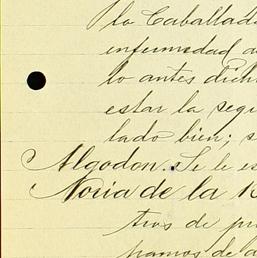 la Caballad
enfermedad d
lo antes dich
estar la segu
lado bien; s
Algodon. Se le es
Noria de la R
tros de pr
pramos de d